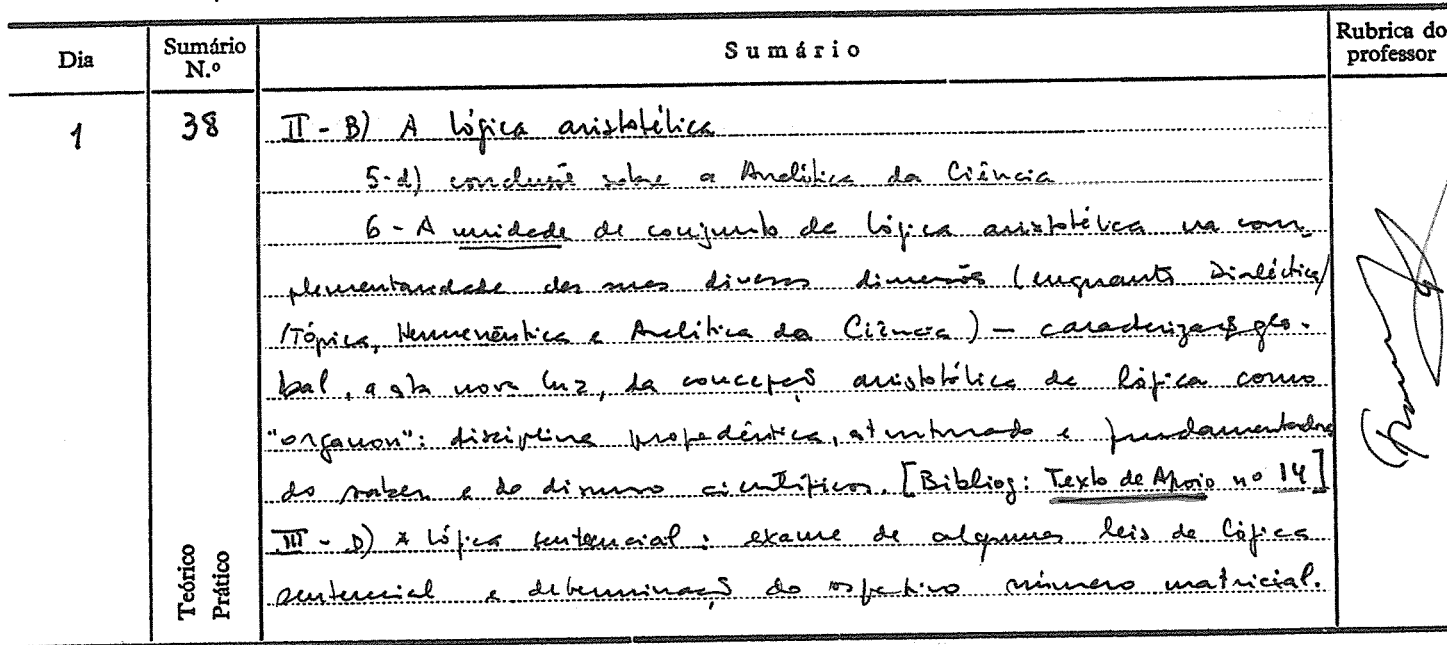 Dia
Sumário N.º
Sumário
Rubrica do professor
1
38
II - B) A lógica aristotélica
5-d) conclusão sobre a Analítica da Ciência
6 - A unidade de conjunto da lógica aristotélica na com-
plementaridade das suas diversas dimensões (enquanto Dialéctica/
/Tópica, Hermenêutica e Analítica da Ciência) — caracterização glo-
bal, a esta nova luz, da concepção aristotélica de lógica como
"organon": disciplina propedêutica, estruturadora e fundamentadora
do saber e do discurso científicos. [Bibliog: Texto de Apoio nº 14]
III - D) A lógica sentencial: exame de algumas leis de lógica
sentencial e determinação do respectivo número matricial.
Teórico
Prático